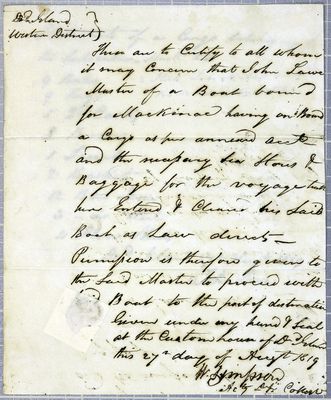 Dd Island
Western District
These are to Certify to all whom
it may Concern that John Lawe
Master of a Boat bound
for Mackinac having on Board
a Cargo as per annexed acct
and the necessary Sea Stores &
Baggage for the voyage hath
here Entered & Cleared his Said
Boat as Law directs
Permission is therefore given to
the Said Master to proceed with
Boat to the port of destination
Given under my hand & Seal
at the Customhouse of Dd Island
this 27th day of Augt 1819
W Simpson
Actg Dy Collector